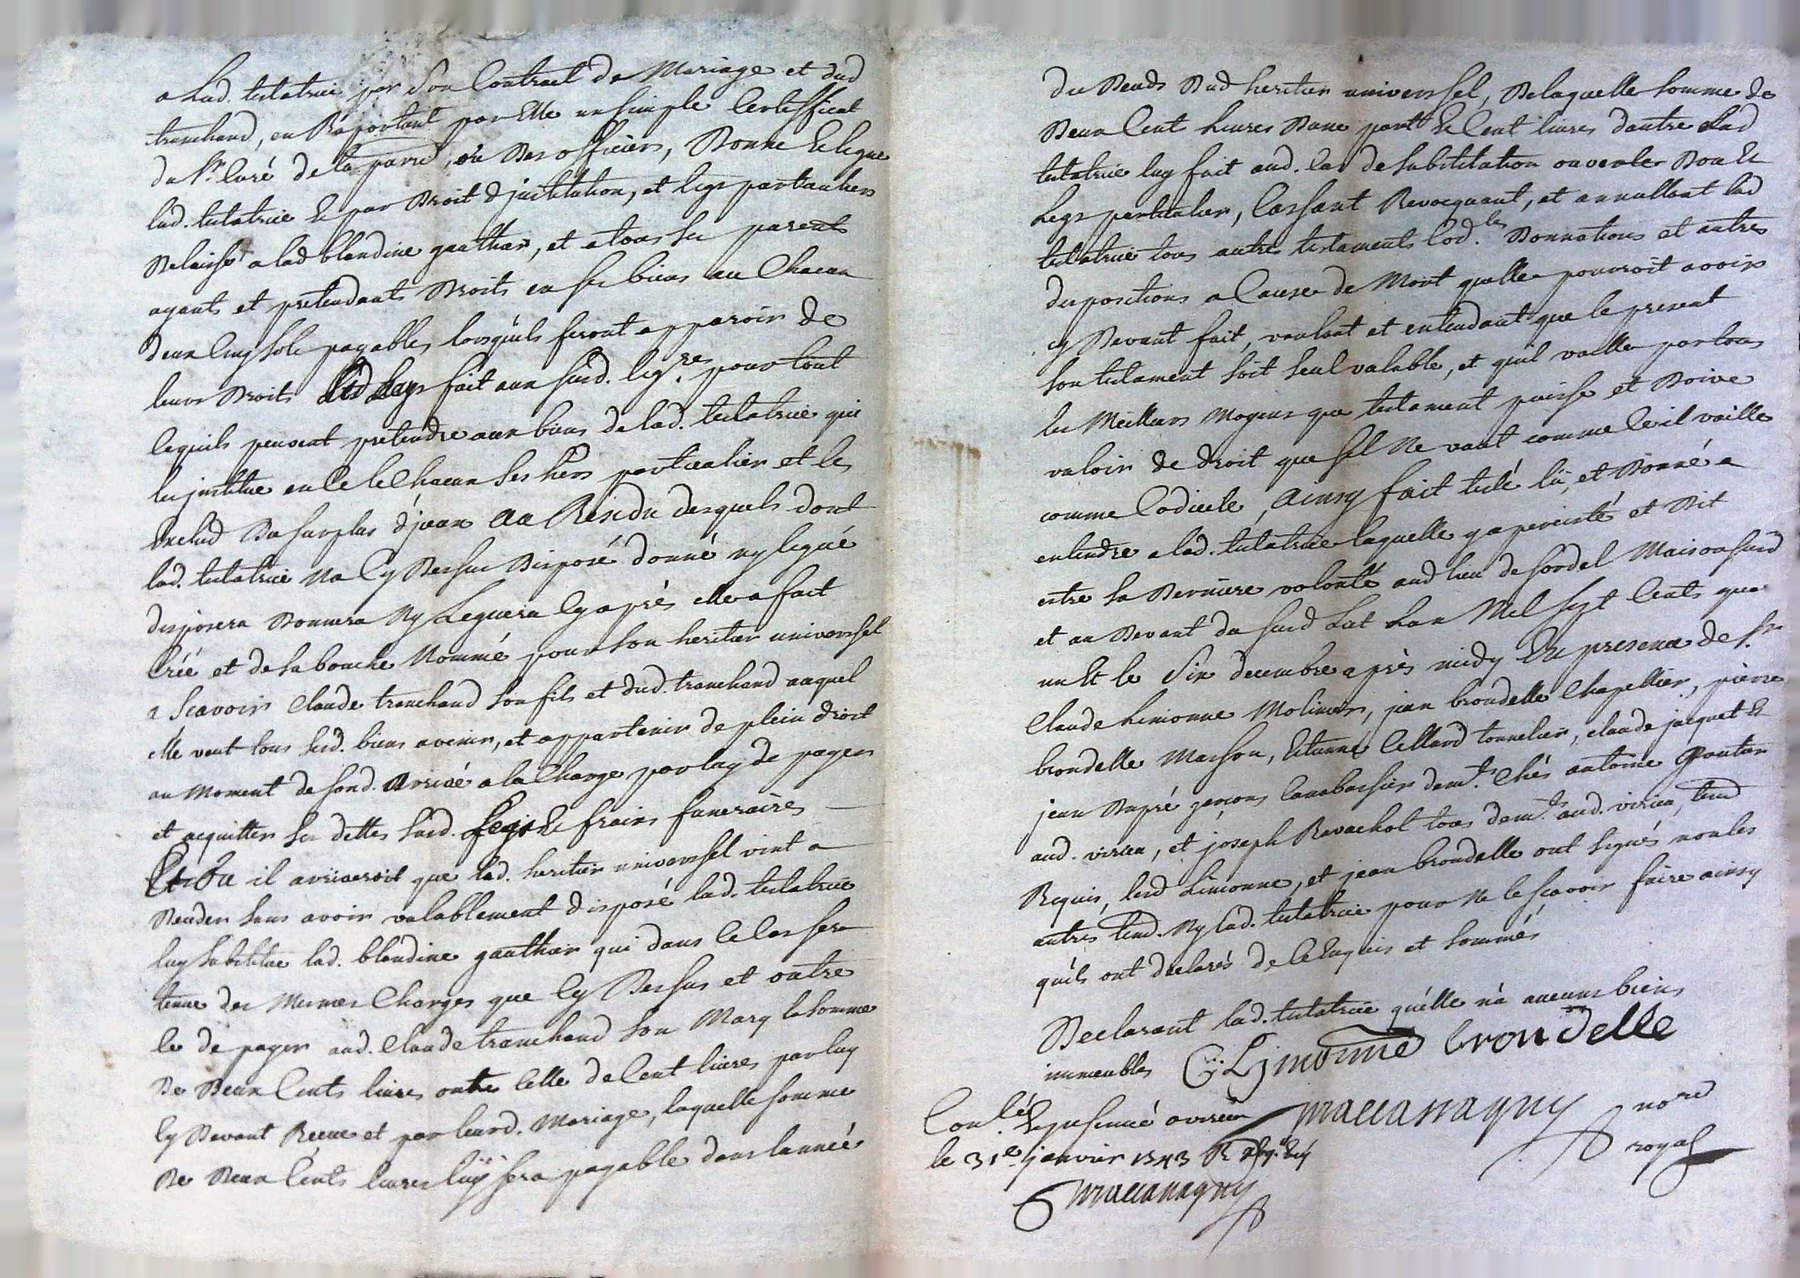 a lad. testatrice par son Contract de Mariage et dud
tranchand, en Raportant par Elle un simple Certifficat
du Sr Curé de la parr.e, ou Des officiers, Donne & legue
lad. testatrice & par Droit d'jnstitution, et legs particuliers
Delaisse a lad blandine gauthier, et a tous ses parents
ayants et pretendants Droits en ses biens au Chacun
deux Cinq sols payables lorsquils feront apparoir de
leurs Droits fait aux susd. leg.res pour tout
lequils peuvent pretendre aux biens de lad. testatrice qui
les jnstitue en ce le Chacun ses hers particulier et les
Exclud Du surplus d'jceux Au Residu desquels dont
lad. testatrice Na Cy Dessus Disposé donné ny legué
disposera Donnera Ny Leguera Cy après elle a fait
Créé et de sa bouche Nommé pour son heritier universsel
a Scavoir Claude tranchand son fils et dud. tranchand auquel
elle veut tous sesd. biens avenir, et appartenir de plein droit
au Moment de sond. a la Charge par luy de payer
et acquitter ses dettes susd. legs & frais funeraires
Et ou il ariveroit que led. heritier universsel vint a
Deceder sans avoir valablement disposé lad. testatrice
luy substitue lad. blandine gauthier qui dans ce Cas sera
tenue des Mesmes Charges que Cy Dessus et outre
ce de payer aud. Claude tranchand son Mary la somme
De Deux Cents livres outre Celle de Cent livres par luy
Cy Devant Receue et par leurd. Mariage, laquelle somme
De Deux Cents livres luy sera payable dans lannée
du Deceds Dud heritier universsel, De laquelle somme de
Deux Cents livres Dune part & Cent livres dautre Lad
testatrice luy fait aud. Cas de substitution ouverte Don &
Legs particulier, Cassant Revocquant, et annullant lad
testatrice tous autres testaments Cod.les Donnations et autres
dispositions a Cause de Mort quelle pourroit avoir
cy Devant fait, voulant et entendant que le present
son testament soit seul valable, et quil vaille par tous
les Meilleurs Moyens que testament puisse et Doive
valoir de droit que sil Ne vaut comme tel il vaille
comme Codicile, Ainsy fait testé lû, et Donné a
entendre a lad. testatrice laquelle y a percisté et Dit
estre sa Derniere volonté aud lieu de sordel Maison susd
et au Devant du susd Lat Lan Mil sept Cents qua
un & le Six decembre après midy En presence de Sr
Claude Limonne Molinier, jean brondelle Chapellier, pierre
brondelle Masson, Etienne Cellard tonnelier, claude jacquet &
jean Dupré garçons Canabassier dem.ts Chés antoine Goutar
aud. virieu, et joseph Ravachol tous dem.ts aud. virieu, tem
Requis, led Limonne, et jean brondelle ont signés non les
autres tem. Ny lad. testatrice pour Ne le scavoir faire ainsy
quils ont declarés de Ce Enquis et sommés
Declarant lad. testatrice quelle n'a aucuns biens
immeubles C: Limonne brondelle
Con.lé & jnsinué a virieu maccanagny no.re
le 31e janvier 1743 R royal
maccanagny